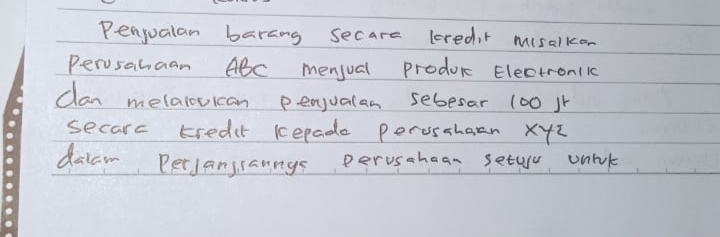 Penjualan barang secara kredit misalkan
Perusahaan ABC menjual produk Electronik
dan melakukan penjualan sebesar 100 jt
secara kredit kepada perusahaan XYZ
dalam Perjanjiannya perusahaan setuju untuk